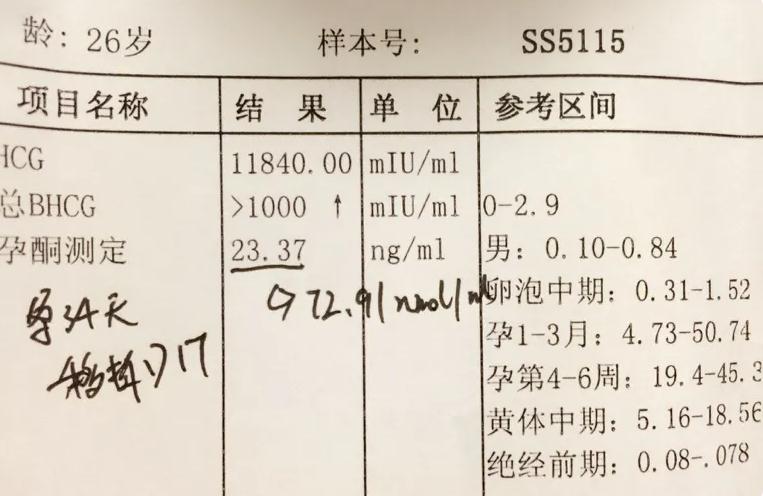 龄: 26岁 样本号: SS5115
项目名称 结 果 单 位 参考区间
HCG 11840.00 mIU/ml
总BHCG >1000 ↑ mIU/ml 0-2.9
孕酮测定 23.37 ng/ml 男: 0.10-0.84
72.91 nmol/ 卵泡中期: 0.31-1.52
孕34天
孕1-3月: 4.73-50.74
17
孕第4-6周: 19.4-45.3
黄体中期: 5.16-18.56
绝经前期: 0.08-.078